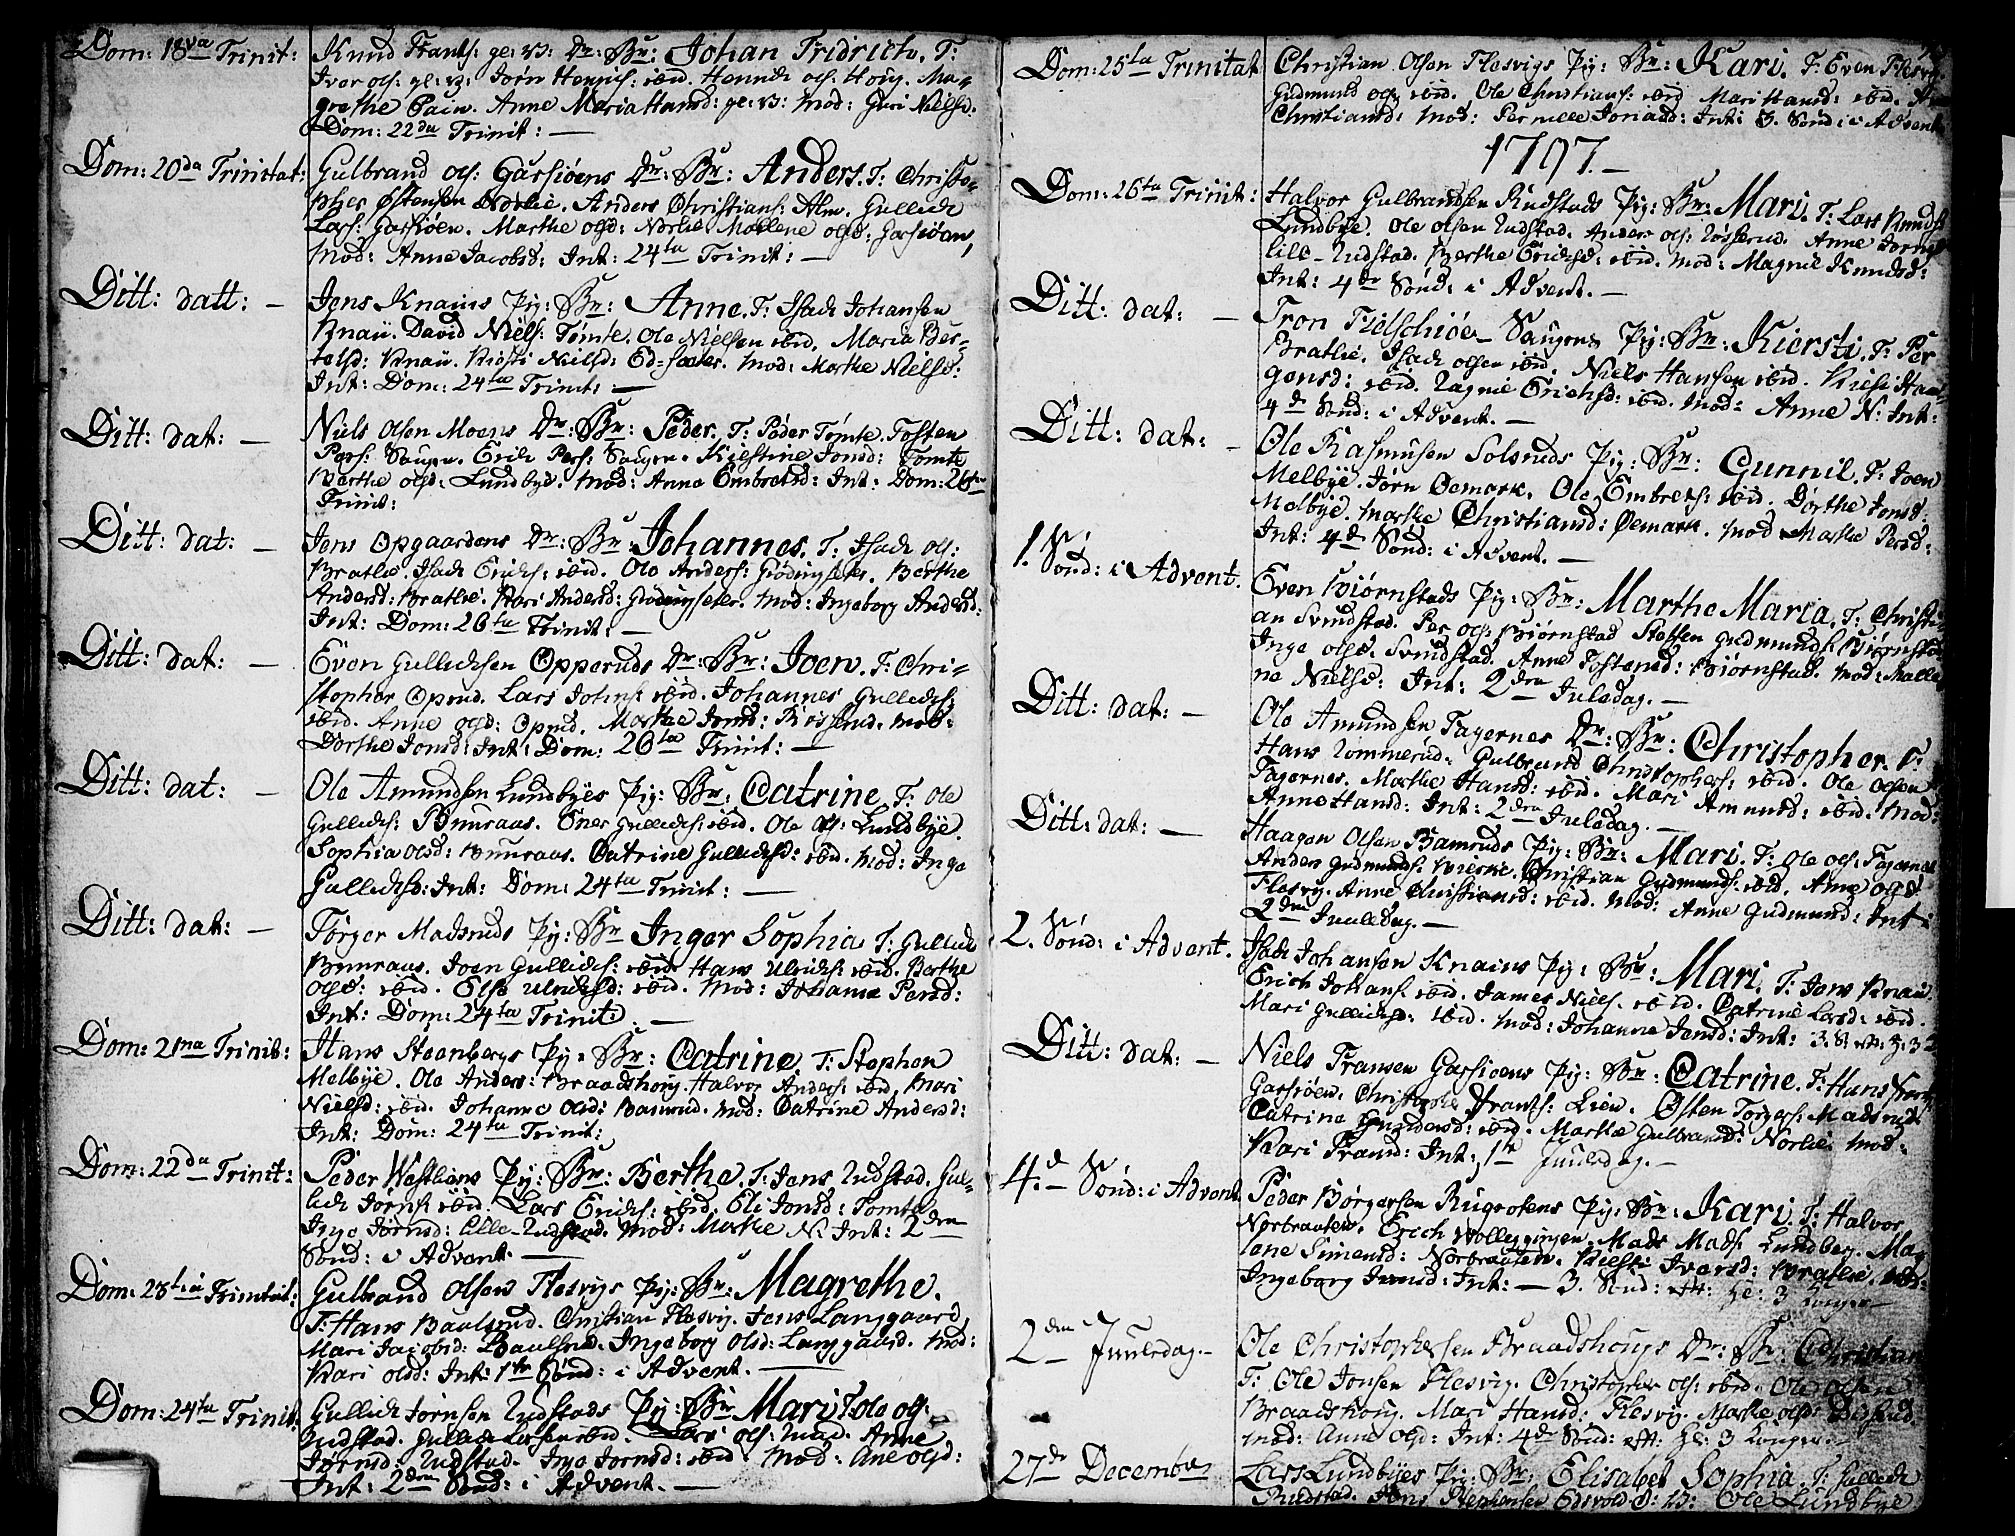 Dom: 18va Trinit: Knud Hans: ge: v: Dr: Br: Johan Fridrich. T:
Iver Ols: ge: v: Jørn Henrichs: ibid. Henrich Ols: Houg. Ma-
grethe Anne Maria Hansd: ge: v: Mod: Guri Nielsd:
Dom: 22da Trinit: —
Dom: 20da Trinitat: Gulbrand Ols: Garsiøens Dr: Br: Anders. T: Christo-
pher Østensen Norlie. Anders Christians: Alm. Gullich
Lars: Garsiøen. Marthe Olsd: Norlie Marlene Olsd: Garsiøen,
Mod: Anne Jacobsd: Int: 24ta Trinit: —
Ditt: datt: — Jens Knaius Pig: Br: Anne. T: Isach Johansen
Knaü. David Niels: Tømte. Ole Nielsen ibid. Maria Ber-
telsd: Knaü. Kiersti Nielsd: Ed-sæter. Mod: Marthe Nielsd:
Int: Dom: 24ta Trinit: —
Ditt: dat: — Niels Olsen Moens Dr: Br: Peder. T: Peder Tømte. Tosten
Pers: Saugen. Erich Pers: Saugen. Kiestine Jonsd: Tomte
Berthe Olsd: Lundbye. Mod: Anne Embretsd: Int: Dom: 26ta
Trinit:
Ditt: dat: — Jens Opgaardens Dr: Br: Johannes. T: Isach Ols:
Bratlie. Isach Erichs: ibid. Ole Anders: Grødingsæter. Berthe
Andersd: Bratlie. Kari Andersd: Grødingsæter. Mod: Ingeborg Andersd:
Int: Dom: 26ta Trinit: —
Ditt: dat: — Even Gullichsen Opperuds Dr: Br: Joen. T: Chri-
stopher Oprud. Lars Johns: ibid. Johannes Gullichs:
ibid. Anne Olsd: Oprud. Marthe Jonsd: Røsserud. Mod:
Dorthe Jonsd: Int: Dom: 26ta Trinit: —
Ditt: dat: — Ole Amundsen Lundbyes Pig: Br: Catrine. T: Ole
Gullichs: Buuraas. Ener Gullichs: ibid. Ole Ols: Lundbye.
Sophia Olsd: Buuraas. Catrine Gullichsd: ibid. Mod: Inge
Gullichsd: Int: Dom: 24ta Trinit: —
Ditt: dat: — Tørger Madsruds Pig: Br Inger Sophia T: Gullich
Buuraas. Joen Gullichs: ibid. Hans Ulrichs: ibid. Berthe
Olsd: ibid. Else Ulrichsd: ibid. Mod: Johanne Persd:
Int: Dom: 24ta Trinit: —
Dom: 21ma Trinit: Hans Steenbergs Pig: Br: Catrine. T: Stephen
Melbye. Ole Anders: Braadshoug. Halvor Anders: ibid, Kari
Nielsd: ibid. Johanne Olsd: Bamrud. Mod: Catrine Andersd:
Int: Dom: 24ta Trinit:
Dom: 22da Trinit: Peder Westliens Pig: Br: Berthe. T: Jens Rudstad. Gul-
lich Jørns: ibid. Lars Erichs: ibid. Eli Jonsd: Tomte
Inge Jørnsd: Lille-Rudstad. Mod: Marthe N: Int: 2den
Sønd: i Advent. —
Dom: 23tia Trinitat: Gulbrand Olsens Flesvigs Pig: Br: Magrethe.
T: Hans Baulsrud. Christian Flesvig. Jens Langgaard,
Mari Jacobsd: Baulsrud. Ingeborg Olsd: Langgaard. Mod:
Kari Olsd: Int: 1te Sønd: i Advent. —
Dom: 24ta Trinit: Gullich Jørnsen Rudstads Pig: Br: Mari T. Ole Ols:
Rudstad. Gullich Larsen ibid. Lars Ols: Anne
Jørnsd: Rudstad. Inge Jørnsd: ibid Mod: Ane Olsd:
Int: 2den Sønd: i Advent. —
Dom: 25ta Trinitat Christian Olsen Flesvigs Pig: Br: Kari. T: Even Flesvig.
Gudmund Ols: ibid. Ole Christians: ibid Mari Hansd: ibid.
Christiansd: Mod: Pernille Joriasd: Int: 3. Sønd: i Advent
1797. —
Dom: 26ta Trinit: Halvor Gulbrandsen Rudstads Pig: Br: Mari. T: Lars Knuds:
Lundbye. Ole Olsen Rudstad. Anders Ols: Røsserud. Anne Jørnsd:
Lille-Rudstad. Berthe Erichsd: ibid. Mod: Magnil Knudsd:
Int: 4de Sønd: i Advent. —
Ditt: dat: — Tron Tielschiøe- Saugens Pig: Br: Kiersti. T: Per
Bratlie. Isach Olsen ibid. Niels Hansen ibid. Kiersti
gensd: ibid. Ragnie Erichsd: ibid. Mod: Anne N: Int:
4de Sønd: i Advent. —
Ditt: dat: — Ole Rasmusen Solsruds Pig: Br: Gunnil. T: Joen
Melbye. Jørn Øemark. Ole Embrets: ibid. Dorthe Jonsd:
Melbye. Marthe Christiansd: Øemark. Mod Marthe Persd:
Int: 4de Sønd: i Advent. —
1. Sønd: i Advent. Even Biørnstads Pig: Br: Marthe Maria. T: Christi-
an Svindstad. Per Ols: Biørnstad Staffen Gudmunds: Biørnstad
Inge Olsd: Svindstad. Anne Tostensd: Biørnstad. Mod: Malle-
ne Nielsd: Int: 2den Juledag. —
Ditt: dat: — Ole Amundsen Fagernes Dr: Br: Christopher. T:
Hans Rommerud. Gulbrand Christophers: ibid. Ole Olsen
Fagernes. Marthe Hansd: ibid. Mari Amundsd: ibid. Mod:
Anne Hansd: Int: 2den Juledag. —
Ditt: dat: — Haagen Olsen Bamruds Pig: Br: Mari. T: Ole Ols: Fagernes
Anders Gudmunds: Christian Gudmunds: ibid. Anne Olsd:
Flesvig. Anne Christiansd: ibid. Mod: Anne Gudmund: Int:
2den Juuledag. —
2. Sønd: i Advent. Isach Johansen Knaius Pig: Br: Mari. T: Jens Knaü.
Erich Johans: ibid. James Niels: ibid. Catrine Larsd: ibid.
Mari Gullichsd: ibid. Mod: Johanne Jensd: Int: 3. S: eft: H: 3
Ditt: dat: — Niels Fransen Garsioens Pig: Br: Catrine. T: Hans
Garsiøen. Christophe Frans: Lien. Østen Torgers: Madsrud
Catrine ibid. Marthe Gulbrandsd: Norlie. Mod:
Kari Fransd: Int: 1te Juuledag. —
4de Sønd: i Advent. Peder Børgersen Rugrotens Pig: Br: Kari. T: Halvor
Norbraaten. Erich Mads Mads: Lundberg. Ma-
lene Simensd: Norbraaten. Kiersti Iversd: Bratlie. Mod:
Ingeborg Int: — 3. Sønd: eft: He: 3 Konger —
2den Juuledag. — Ole Christophersen Braadshougs Dr: Br: Christian
T: Ole Jonsen Flesvig. Christopher Ols: ibid. Ole Olsen
Braadshoug. Mari Hansd: Flesvig. Marthe Olsd:
Mod: Anne Olsd: Int: 4de Sønd: eft: He: 3 Konger —
27de December Lars Lundbyes Pig: Br: Elisabet Sophia. T: Gullich
Rudstad. Jens Stephensen Edsvold S: V: Ole Lundbye